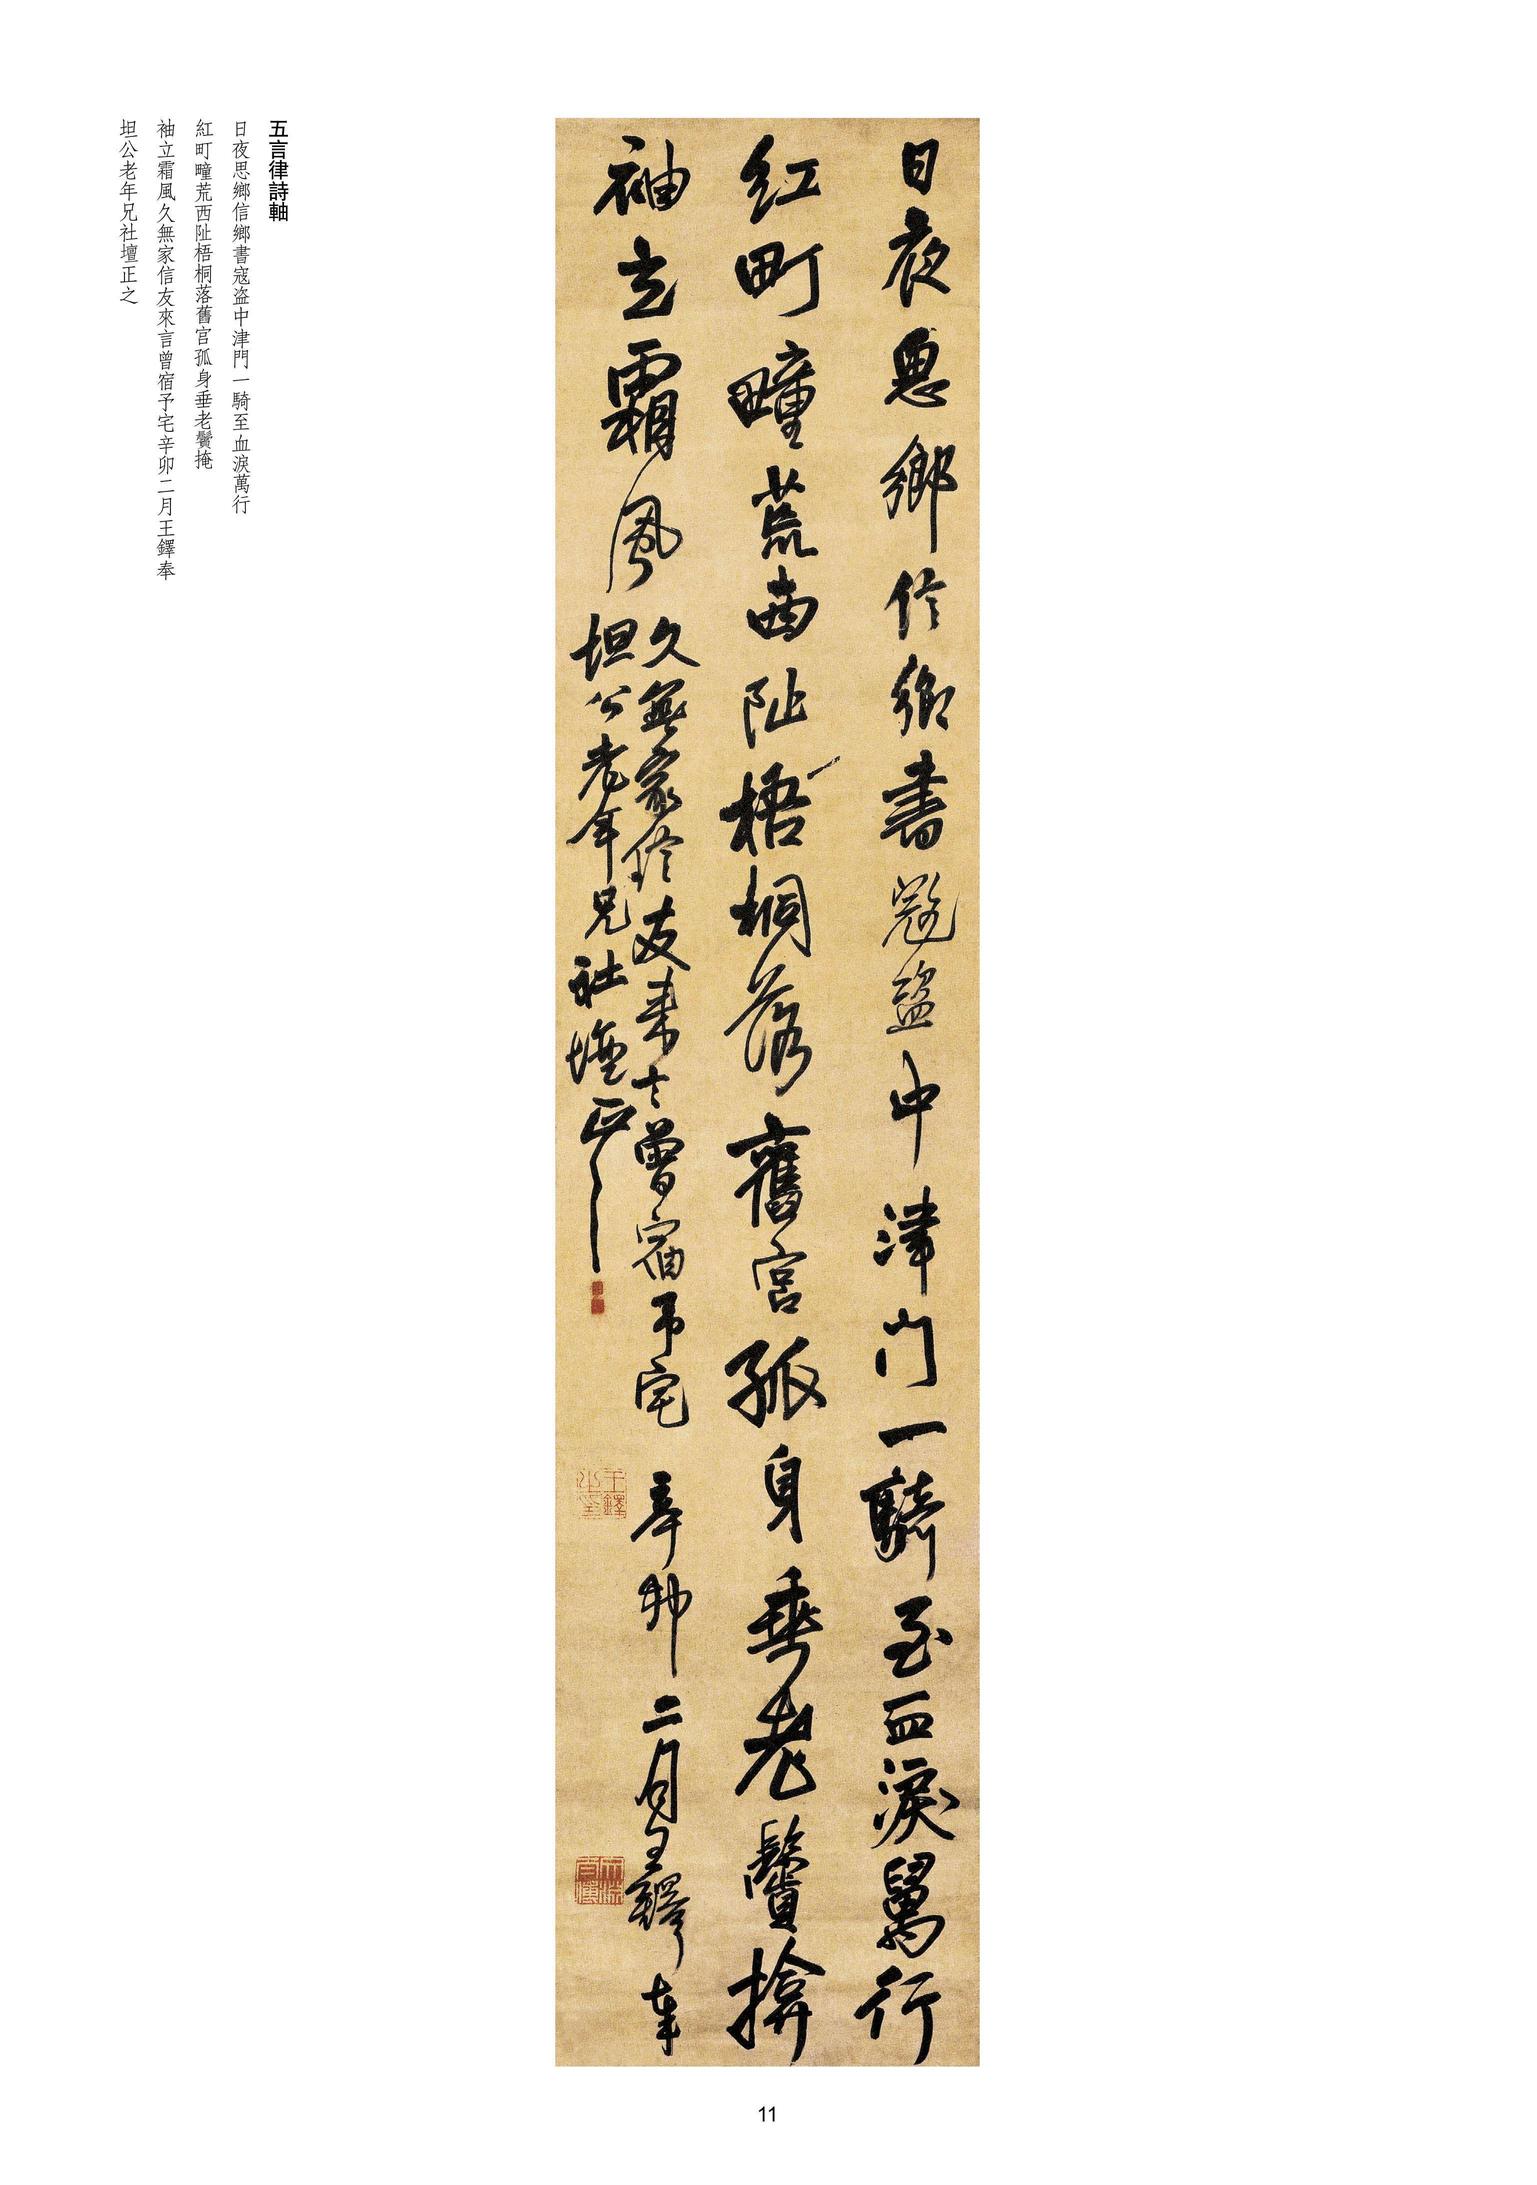 日夜思鄉信鄉書寇盗中津門一騎至血淚萬行
紅町疃荒西阯梧桐落舊宮孤身垂老鬢揜
袖立霜風
久無家信友來言曾宿予宅 辛卯二月王鐸奉
坦公老年兄社壇正之
王鐸之璽
五言律詩軸
日夜思鄉信鄉書寇盗中津門一騎至血淚萬行
紅町疃荒西阯梧桐落舊宮孤身垂老鬢掩
袖立霜風久無家信友來言曾宿予宅辛卯二月王鐸奉
坦公老年兄社壇正之
11